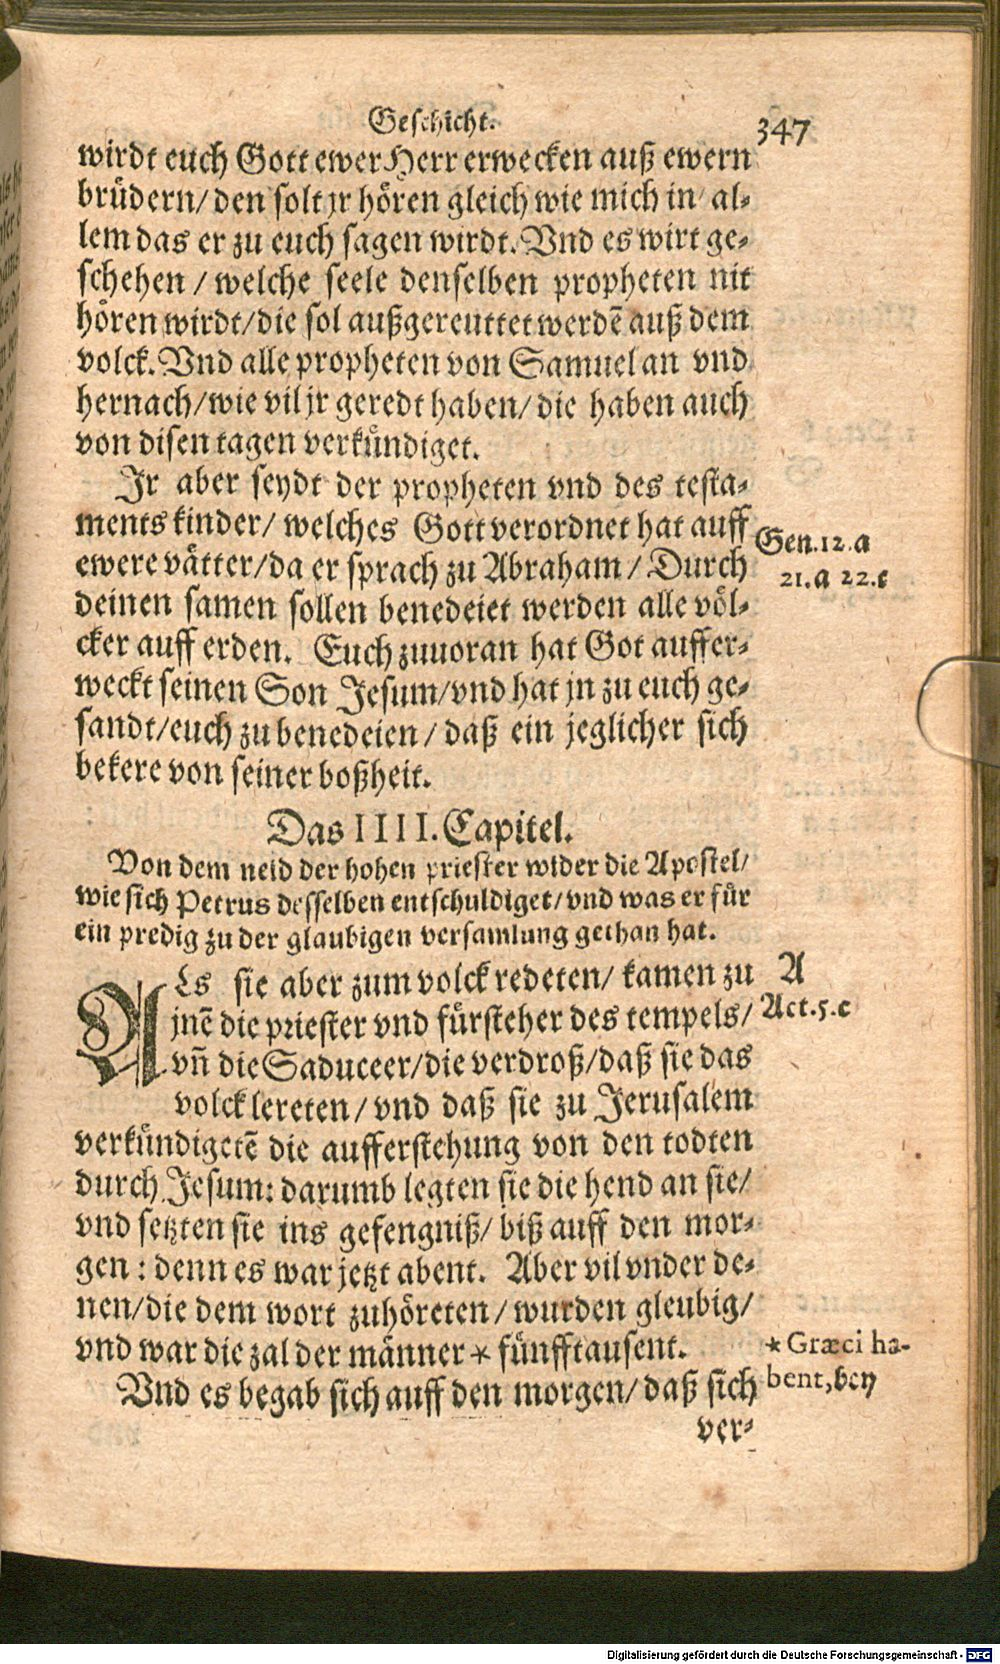 Geschicht.
347
wirdt euch Gott ewer Herr erwecken auß ewern
brüdern/ den solt jr hören gleich wie mich in al-
lem das er zu euch sagen wirdt. Vnd es wirt ge-
schehen / welche seele denselben propheten nit
hören wirdt/ die sol außgereuttet werdē auß dem
volck. Vnd alle propheten von Samuel an vnd
hernach/ wie vil jr geredt haben/ die haben auch
von disen tagen verkündiget.
Jr aber seydt der propheten vnd des testa-
ments kinder/ welches Gott verordnet hat auff
ewere vätter/ da er sprach zu Abraham / Durch
deinen samen sollen benedeiet werden alle völ-
cker auff erden. Euch zuuoran hat Got auffer-
weckt seinen Son Jesum/ vnd hat jn zu euch ge-
sandt/ euch zu benedeien / daß ein jeglicher sich
bekere von seiner boßheit.
Gen. 12. a
21. a 22. c
Das IIII. Capitel.
Von dem neid der hohen priester wider die Apostel/
wie sich Petrus desselben entschuldiget/ vnd was er für
ein predig zu der glaubigen versamlung gethan hat.
ALs sie aber zum volck redeten/ kamen zu
jnē die priester vnd fürsteher des tempels/
vñ die Saduceer/ die verdroß/ daß sie das
volck lereten / vnd daß sie zu Jerusalem
verkündigetē die aufferstehung von den todten
durch Jesum: darumb legten sie die hend an sie/
vnd setzten sie ins gefengniß/ biß auff den mor-
gen : denn es war jetzt abent. Aber vil vnder de-
nen/ die dem wort zuhöreten / wurden gleubig/
vnd war die zal der männer * fünfftausent.
Vnd es begab sich auff den morgen/ daß sich
ver-
A
Act. 5. c
* Græci ha-
bent, bey
Digitalisierung gefördert durch die Deutsche Forschungsgemeinschaft - DFG